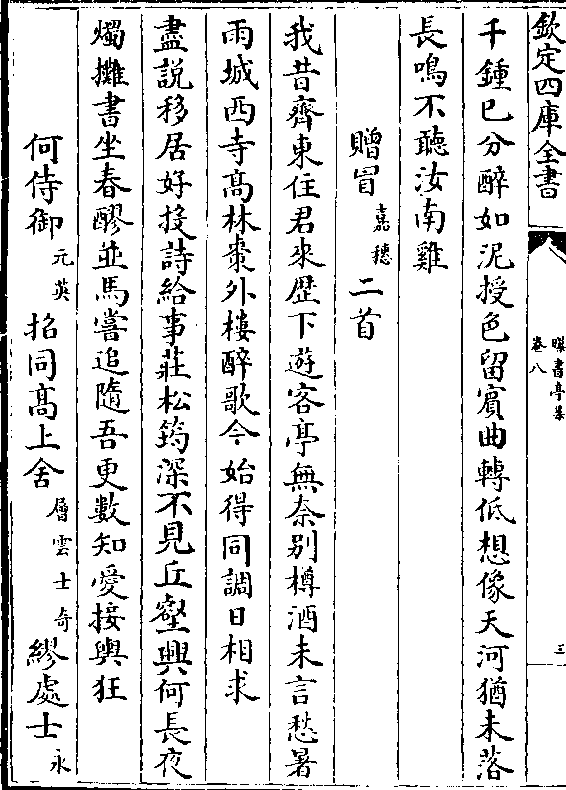 欽定四庫全書
曝書亭集
卷八
三
千鍾已分醉如泥授色留賓曲轉低想像天河猶未落
長鳴不聽汝南雞
贈冒嘉穗二首
我昔齊東住君來歴下遊客亭無奈别樽酒未言愁暑
雨城西寺髙林棗外樓醉歌今始得同調日相求
盡説移居好投詩給事莊松筠深不見丘壑興何長夜
燭攤書坐春醪並馬嘗追隨吾更數知愛接輿狂
何侍御元英招同髙上舍層雲士奇繆處士永